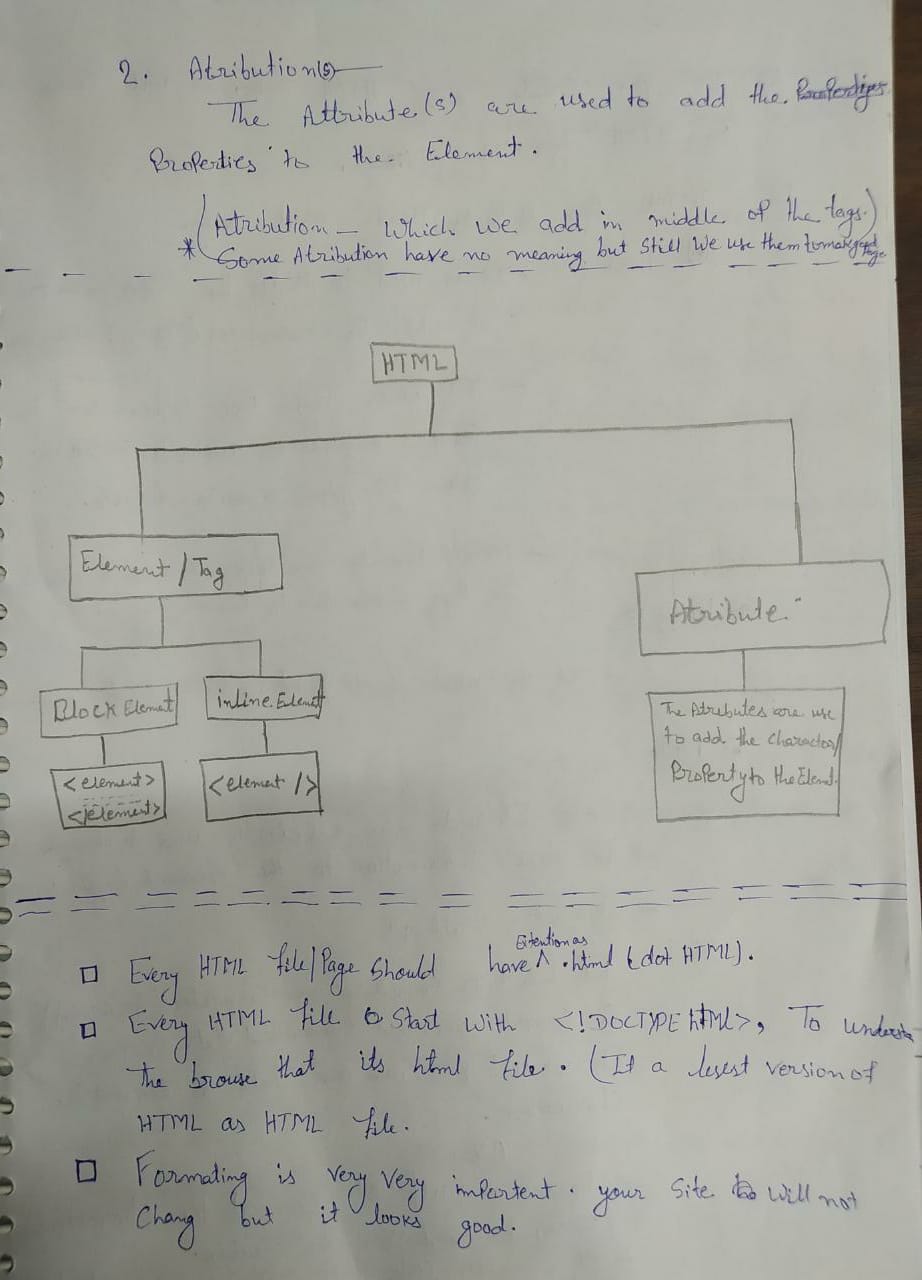 2. Atribution(s)
The Attribute(s) are used to add the
Properties to the Element.
(Atribution — Which we add in middle of the tags.)
* Some Atribution have no meaning but still We use them to make good Page
HTML
Element / Tag
Atribute
Block Elemet
inline Elemet
The Atributes are use
to add the character/
Property to the Elemet.
<element>
</element>
<element />
Extention as
Every HTML file/Page Should have ^ .html (dot HTML).
Every HTML file Start with <!DOCTYPE html>, To understa
the brouse that its html file. (It a version of
HTML as HTML file.
Formating is very very impartent. your Site will not
Chang but it looks good.